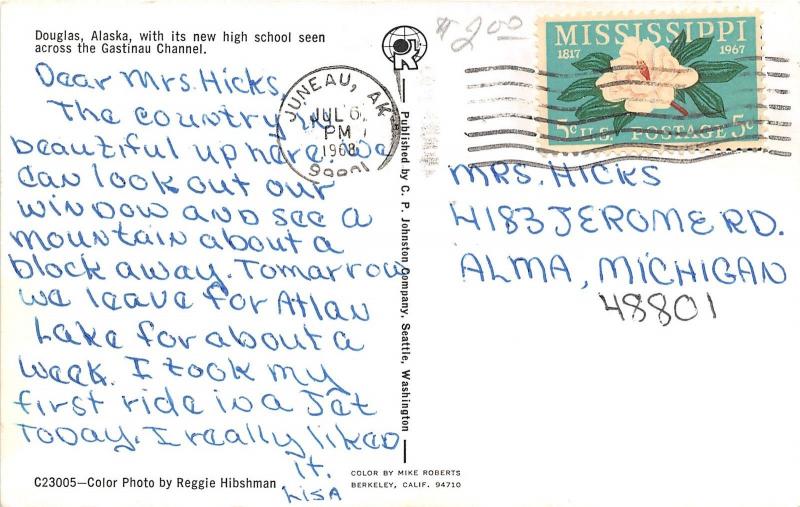 Douglas, Alaska, with its new high school seen
across the Gastinau Channel.
Dear Mrs. Hicks,
The country is
beautiful up here. We
can look out our
window and see a
mountain about a
block away. Tomarrow
we leave for Atlan
Lake for about a
week. I took my
first ride in a Jet
Today. I really liked
it.
Lisa
C23005—Color Photo by Reggie Hibshman
Published by C. P. Johnston Company, Seattle, Washington
COLOR BY MIKE ROBERTS
BERKELEY, CALIF. 94710
$2.00
JUNEAU, AK
JUL 6
PM
1968
MISSISSIPPI
1817 1967
5c U.S. POSTAGE 5c
MRS. HICKS
4183 JEROME RD.
ALMA, MICHIGAN
48801